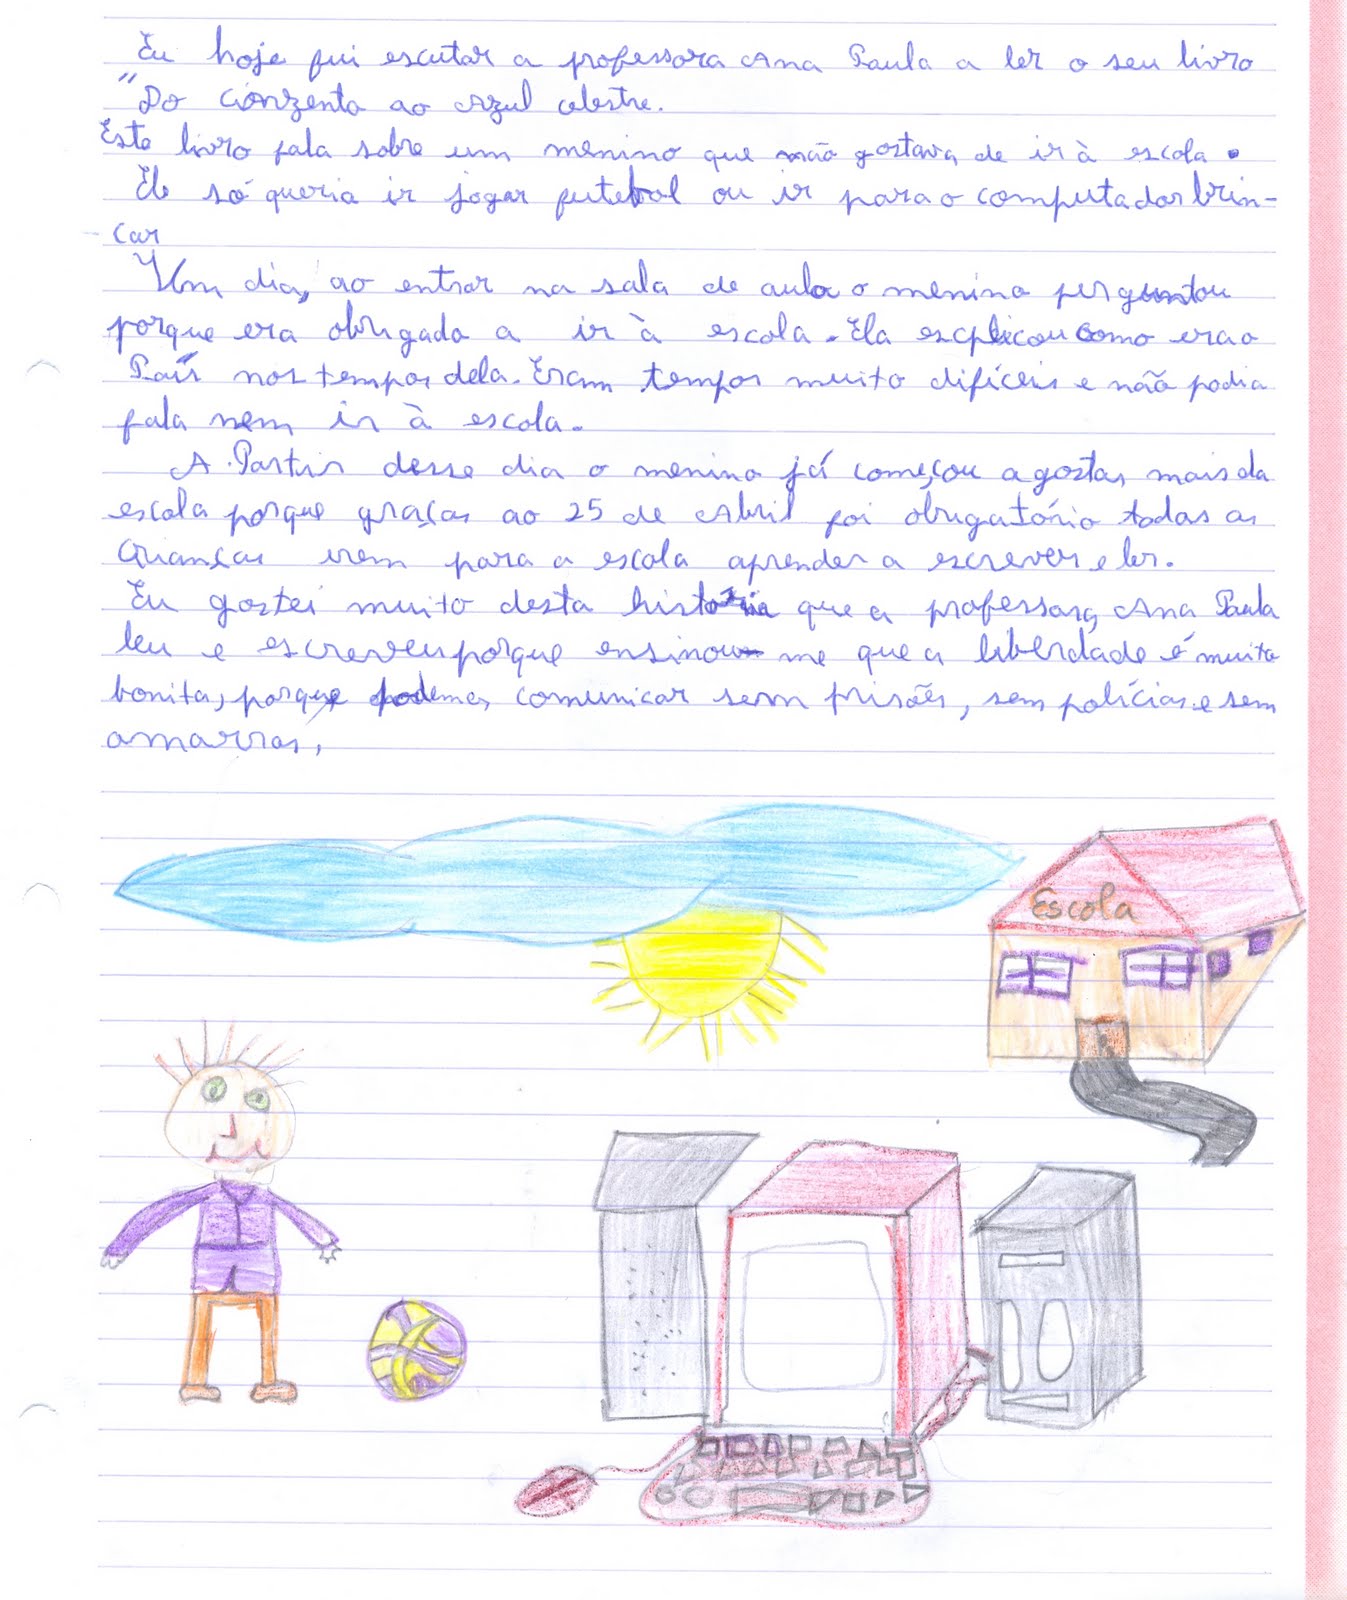 Eu hoje fui escutar a professora Ana Paula a ler o seu livro
"Do Cinzento ao Azul celestre.
Este livro fala sobre um menino que não gostava de ir à escola.
Ele só queria ir jogar futebol ou ir para o computador brin-
car
Um dia, ao entrar na sala de aula o menino perguntou
porque era obrigado a ir à escola. Ela escplicou como era o
País nos tempos dela. Eram tempos muito difíceis e não podia
fala nem ir à escola.
A Partir desse dia o menino já começou a gostar mais da
escola porque graças ao 25 de Abril foi obrigatório todas as
crianças irem para a escola aprender a escrever e ler.
Eu gostei muito desta história que a professora, Ana Paula
leu e escreveu porque ensinou-me que a liberdade é muito
bonita, porque podemos comunicar sem prisões, sem polícias e sem
amarras,
Escola